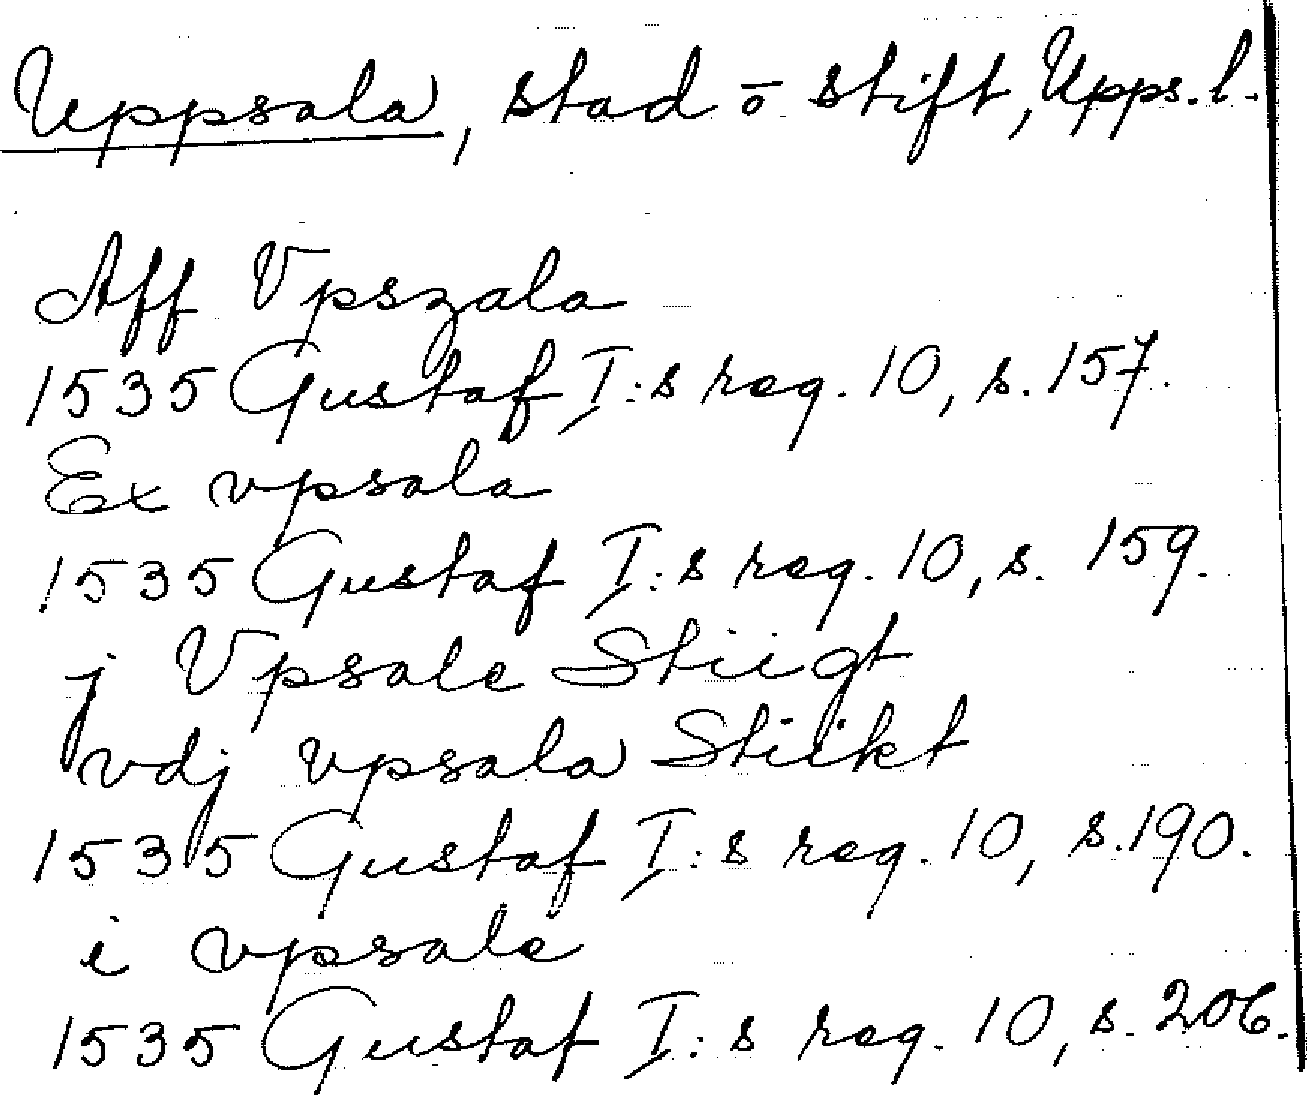 Uppsala, stad o stift, Upps. l.
Aff Vpszala
1535 Gustaf I:s reg. 10, s. 157.
Ex vpsala
1535 Gustaf I:s reg. 10, s. 159.
j Vpsale Stiigt
vdj vpsala Stiikt
1535 Gustaf I:s reg. 10, s. 190.
i vpsale
1535 Gustaf I:s reg. 10, s. 206.